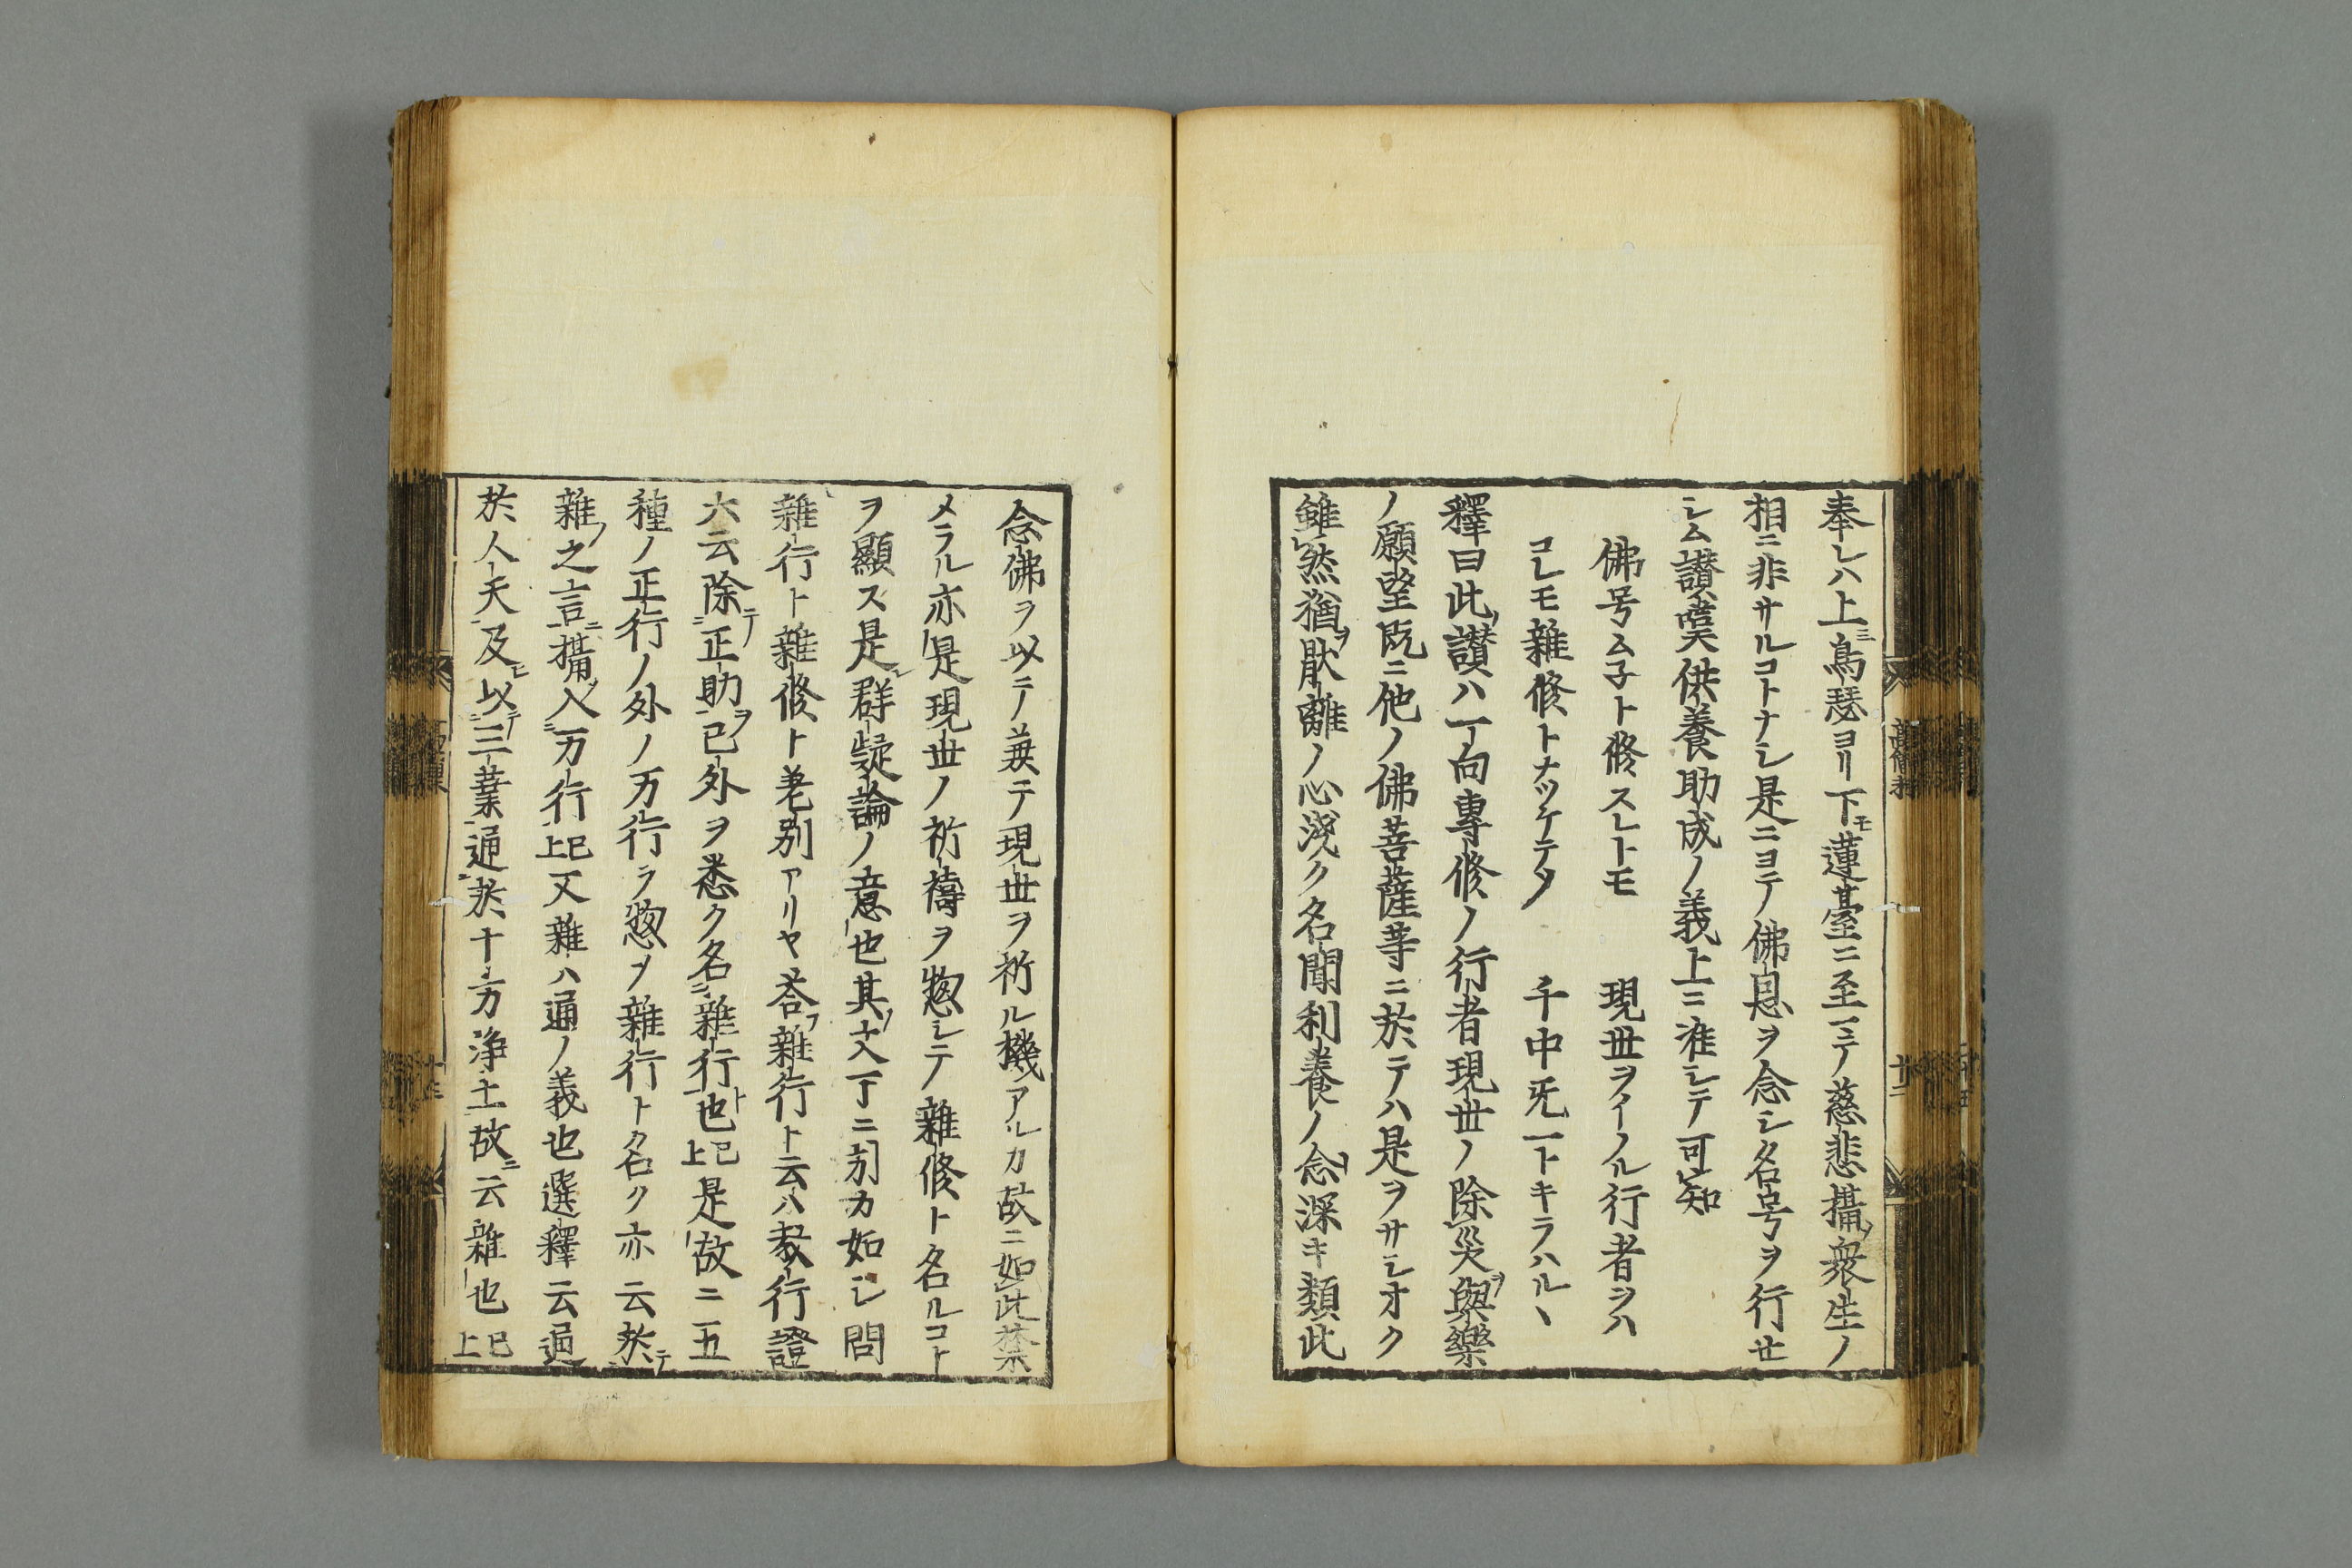 奉レハ上ミ鳥瑟ヨリ下モ蓮臺ニ至ミテ慈悲攝衆生ノ
相ニ非サルコトナシ是ニヨテ佛恩ヲ念シ名号ヲ行せ
シム讃嘆供養助成ノ義上ニ准シテ可知
佛号ムネト修スレトモ 現世ヲイノル行者ヲハ
コレモ雜修トナツケテソ 千中无一トキラハルヽ
釋曰此讃ハ一向專修ノ行者現世ノ除災與樂
ノ願望既ニ他ノ佛菩薩等ニ於テハ是ヲサシオク
雖然猶ヲ猒離ノ心淺ク名聞利養ノ念深キ類此
念佛ヲ以テ兼テ現世ヲ祈ル機アルカ故ニ如此禁
メラル亦是現世ノ祈禱ヲ惣シテ雜修ト名ルコト
ヲ顯ス是群疑論ノ意也其文下ニ引カ如シ問
雜行ト雜修ト差別アリヤ荅雜行ト云ハ教行證
六云除テ正助ヲ已外ヲ悉ク名雜行ト也已上是故ニ一五
種ノ正行ノ外ノ万行ヲ惣ソ雜行ト名ク亦云於テ
雜ノ之言ニ攝入万行已上又雜ハ通ノ義也選釋云通
於人天及モ以テ三業通於十方浄土故ニ云雜也已上